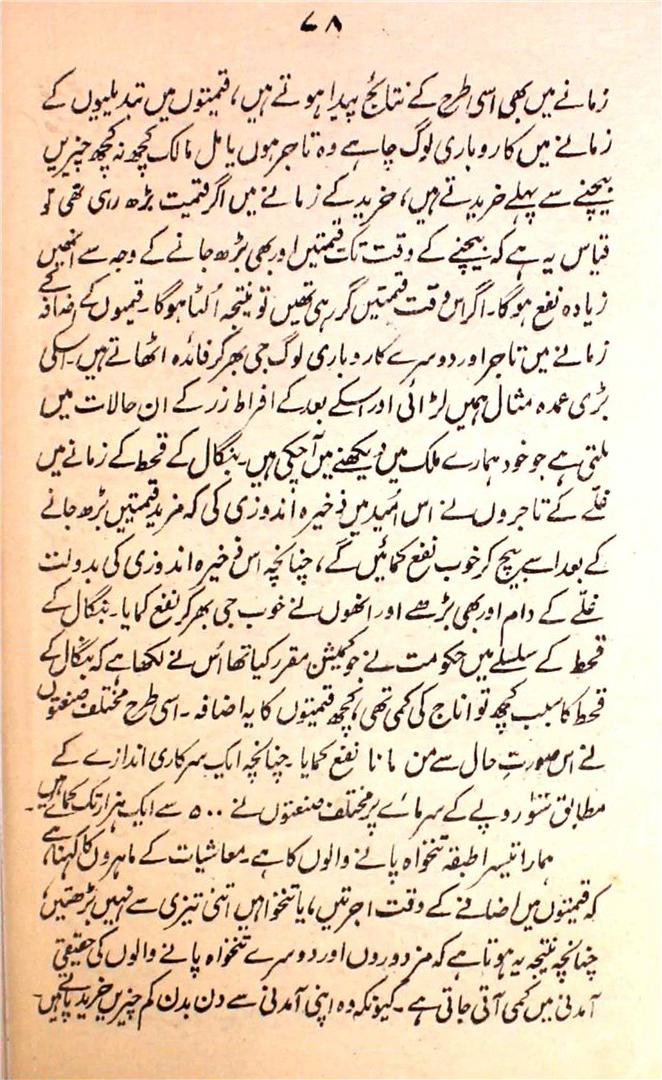 ۷۸
زمانے میں بھی اسی طرح کے نتائج پیدا ہوتے ہیں، قیمتوں میں تبدیلیوں کے
زمانے میں کاروباری لوگ چاہے وہ تاجر ہوں یا مل مالک کچھ نہ کچھ چیزیں
بیچنے سے پہلے خریدتے ہیں، خرید کے زمانے میں اگر قیمت بڑھ رہی تھی تو
قیاس یہ ہے کہ بیچنے کے وقت تک قیمتیں اور بھی بڑھ جانے کے وجہ سے انھیں
زیادہ نفع ہوگا۔ اگر اس وقت قیمتیں گر رہی تھیں تو نتیجہ اُلٹا ہوگا۔ قیموں کے اضافہ کے
زمانے میں تاجر اور دوسرے کاروباری لوگ جی بھر کر فائدہ اٹھاتے ہیں۔ اسکی
بڑی عمدہ مثال ہمیں لڑائی اور اسکے بعد کے افراط زر کے ان حالات میں
ملتی ہے جو خود ہمارے ملک میں دیکھنے میں آچکی ہیں۔ بنگال کے قحط کے زمانے میں
غلّے کے تاجروں نے اس اُمید میں ذخیرہ اندوزی کی کہ مزید قیمتیں بڑھ جانے
کے بعد اسے بیچ کر خوب نفع کمائیں گے، چنانچہ اس ذخیرہ اندوزی کی بدولت
غلّے کے دام اور بھی بڑھے اور انھوں نے خوب جی بھر کر نفع کمایا۔ بنگال کے
قحط کے سلسلے میں حکومت نے جو کمیشن مقرر کیا تھا اُس نے لکھا ہے کہ بنگال کے
قحط کا سبب کچھ تو اناج کی کمی تھی، کچھ قیمتوں کا یہ اضافہ۔ اسی طرح مختلف صنعتوں
نے اس صورتِ حال سے من مانا نفع کمایا۔ چنانچہ ایک سرکاری اندازے کے
مطابق سَو روپے کے سرمائے پر مختلف صنعتوں نے ۵۰۰ سے ایک ہزار تک کمائے ہیں۔
ہمارا تیسرا طبقہ تنخواہ پانے والوں کا ہے۔ معاشیات کے ماہروں کا کہنا ہے
کہ قیمتوں میں اضافے کے وقت اجرتیں، یا تنخواہیں اتنی تیزی سے نہیں بڑھتیں،
چنانچہ نتیجہ یہ ہوتا ہے کہ مزدوروں اور دوسرے تنخواہ پانے والوں کی حقیقی
آمدنی میں کمی آتی جاتی ہے۔ کیونکہ وہ اپنی آمدنی سے دن بدن کم چیزیں خرید پاتے ہیں۔